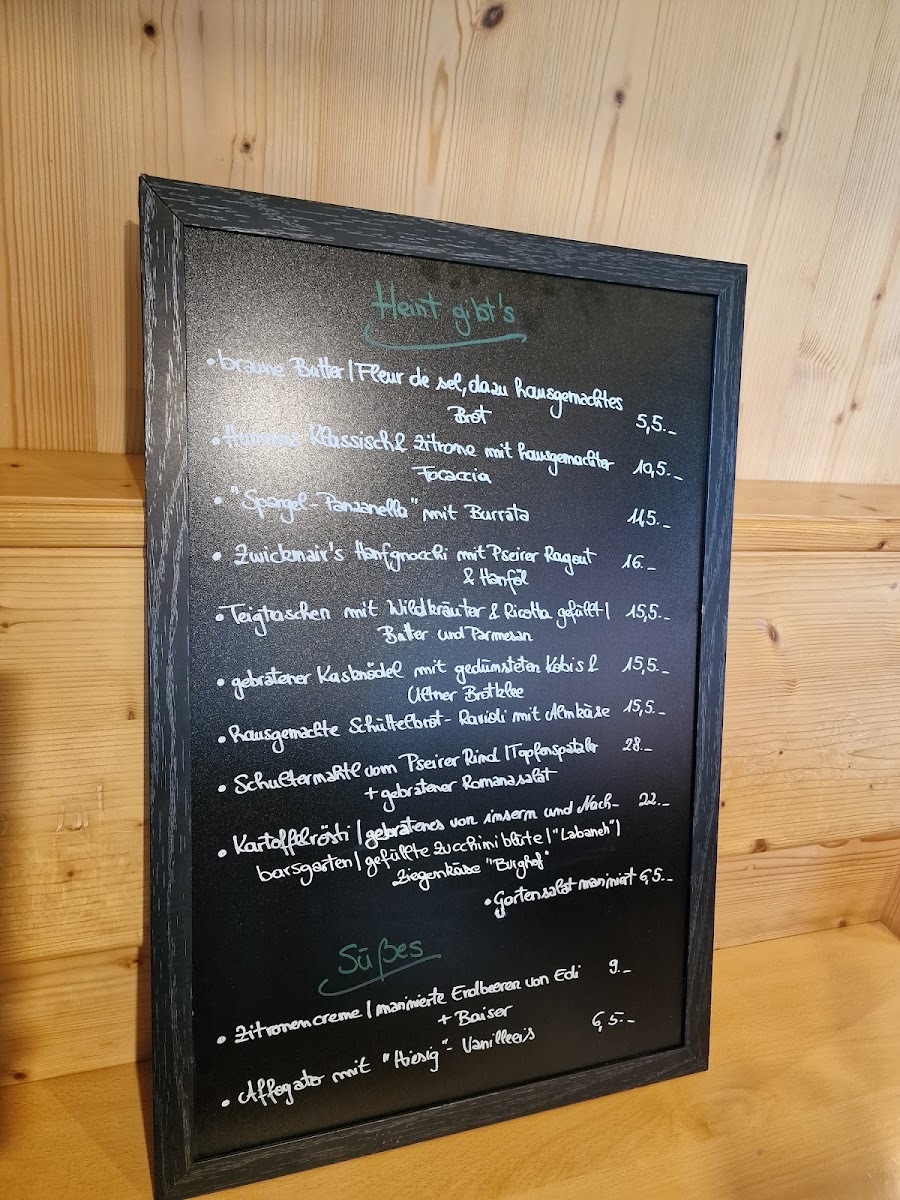 Heint gibt's
• braune Butter | Fleur de sel, dazu hausgemachtes
Brot 5,5.-
• Hummus Klassisch & Zitrone mit hausgemachter
Focaccia 10,5.-
• "Spargel-Panzanella" mit Burrata 14,5.-
• Zwickmair's Hanfgnocchi mit Pseirer Ragout 16.-
& Hanföl
• Teigtaschen mit Wildkräuter & Ricotta gefüllt | 15,5.-
Butter und Parmesan
• gebratener Kasknödel mit gedünsteten Kobis & 15,5.-
Ultner Brotklee
• hausgemachte Schüttelbrot-Ravioli mit Almkäse 15,5.-
• Schultermahtl vom Pseirer Rind | Topfenspatzln 28.-
+ gebratener Romanasalat
• Kartoffelrösti | gebratenes von insern und Nach- 22.-
barsgarten | gefüllte Zucchiniblüte | "Labaneh" |
Ziegenkäse "Burghof"
• Gartensalat mariniert 6,5.-
Süßes
• Zitronencreme | marinierte Erdbeeren von Edi 9.-
+ Baiser
• Affogato mit "Hiesig"- Vanilleeis 6,5.-